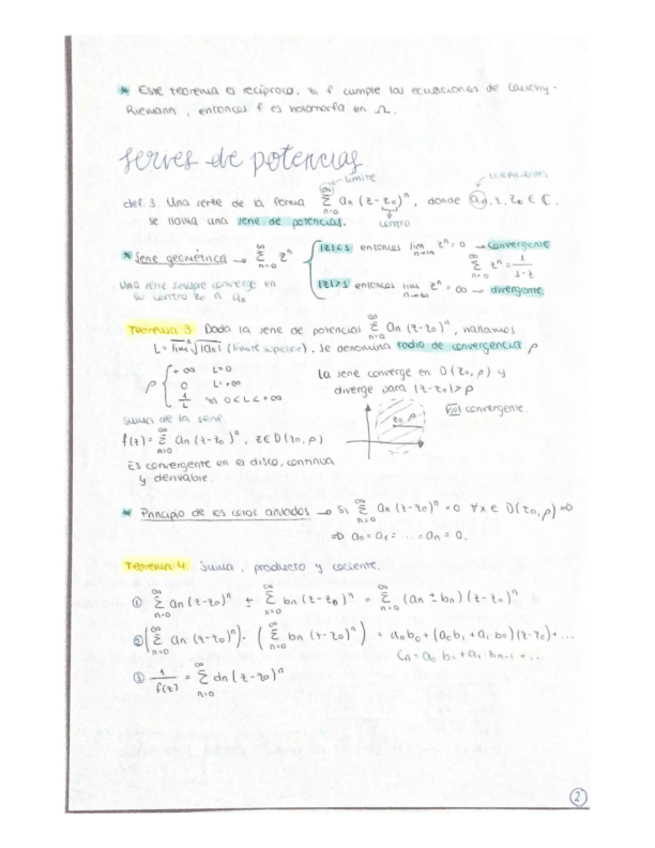 * Este teorema es recíproco, si f cumple las ecuaciones de Cauchy-
Riemann, entonces f es holomorfa en Ω.
Series de potencias
límite
coeficientes
def. 3. Una serie de la forma ∑_{n=0}^{∞} an (z-z0)^n, donde an, z, z0 ∈ ℂ.
se llama una serie de potencias.
centro
* Serie geométrica → ∑_{n=0}^{∞} z^n
|z|<1 entonces lim_{n→∞} z^n = 0 → convergente
∑_{n=0}^{∞} z^n = 1/(1-z)
|z|>1 entonces lim_{n→∞} z^n = ∞ → divergente
Una serie siempre converge en
su centro z0 a a0
Teorema 3 Dada la serie de potencias ∑_{n=0}^{∞} an (z-z0)^n, hallamos
L = lim ⁿ√|an| (límite superior), se denomina radio de convergencia ρ
ρ { +∞ L=0
0 L=+∞
1/L si 0<L<+∞
la serie converge en D(z0, ρ) y
diverge para |z-z0|>ρ
z0 ρ
convergente.
suma de la serie.
f(z) = ∑_{n=0}^{∞} an (z-z0)^n, z∈D(z0, ρ)
Es convergente en el disco, continua
y derivable.
* Principio de los ceros aislados → Si ∑_{n=0}^{∞} an (z-z0)^n = 0 ∀x ∈ D(z0, ρ) ⇒
⇒ a0 = a1 = ... = an = 0.
Teorema 4 Suma, producto y cociente.
① ∑_{n=0}^{∞} an (z-z0)^n ± ∑_{n=0}^{∞} bn (z-z0)^n = ∑_{n=0}^{∞} (an ± bn)(z-z0)^n
② (∑_{n=0}^{∞} an (z-z0)^n) · (∑_{n=0}^{∞} bn (z-z0)^n) = a0b0 + (a0b1 + a1·b0)(z-z0) + ...
③ 1/f(z) = ∑_{n=0}^{∞} dn (z-z0)^n
2